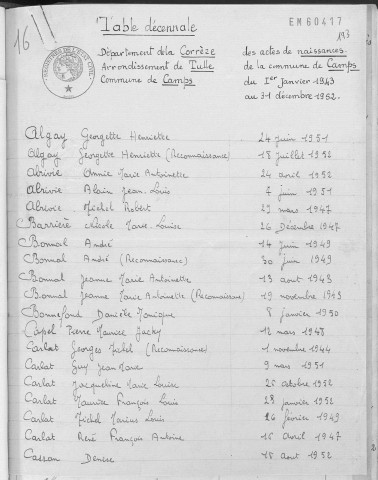 16
Table décennale
EM60417
Département de la Corrèze
Arrondissement de Tulle
Commune de Camps
des actes de naissances
de la commune de Camps
du 1er janvier 1943
au 31 décembre 1952.
Algay Georgette Henriette 24 juin 1951
Algay Georgette Henriette (Reconnaissance) 18 juillet 1952
Abrivie Annie Marie Antoinette 24 avril 1952
Abrivie Alain Jean Louis 7 juin 1951
Abrivie Michel Robert 29 mars 1947
Barrière Nicole Marie Louise 26 Décembre 1947
Bonnal André 14 juin 1949
Bonnal André (Reconnaissance) 30 juin 1949
Bonnal Jeanne Marie Antoinette 13 août 1943
Bonnal Jeanne Marie Antoinette (Reconnaissance) 19 novembre 1943
Bonnefond Danièle Monique 8 janvier 1950
Capel Pierre Maurice Jacky 12 mars 1948
Carlat Georges Michel (Reconnaissance) 1 novembre 1944
Carlat Guy Jean Marie 9 mars 1951
Carlat Jacqueline Marie Louise 26 octobre 1952
Carlat Maurice François Louis 28 janvier 1952
Carlat Michel Marius Louis 26 février 1949
Carlat René François Antoine 16 avril 1947
Cassan Denise 18 août 1952